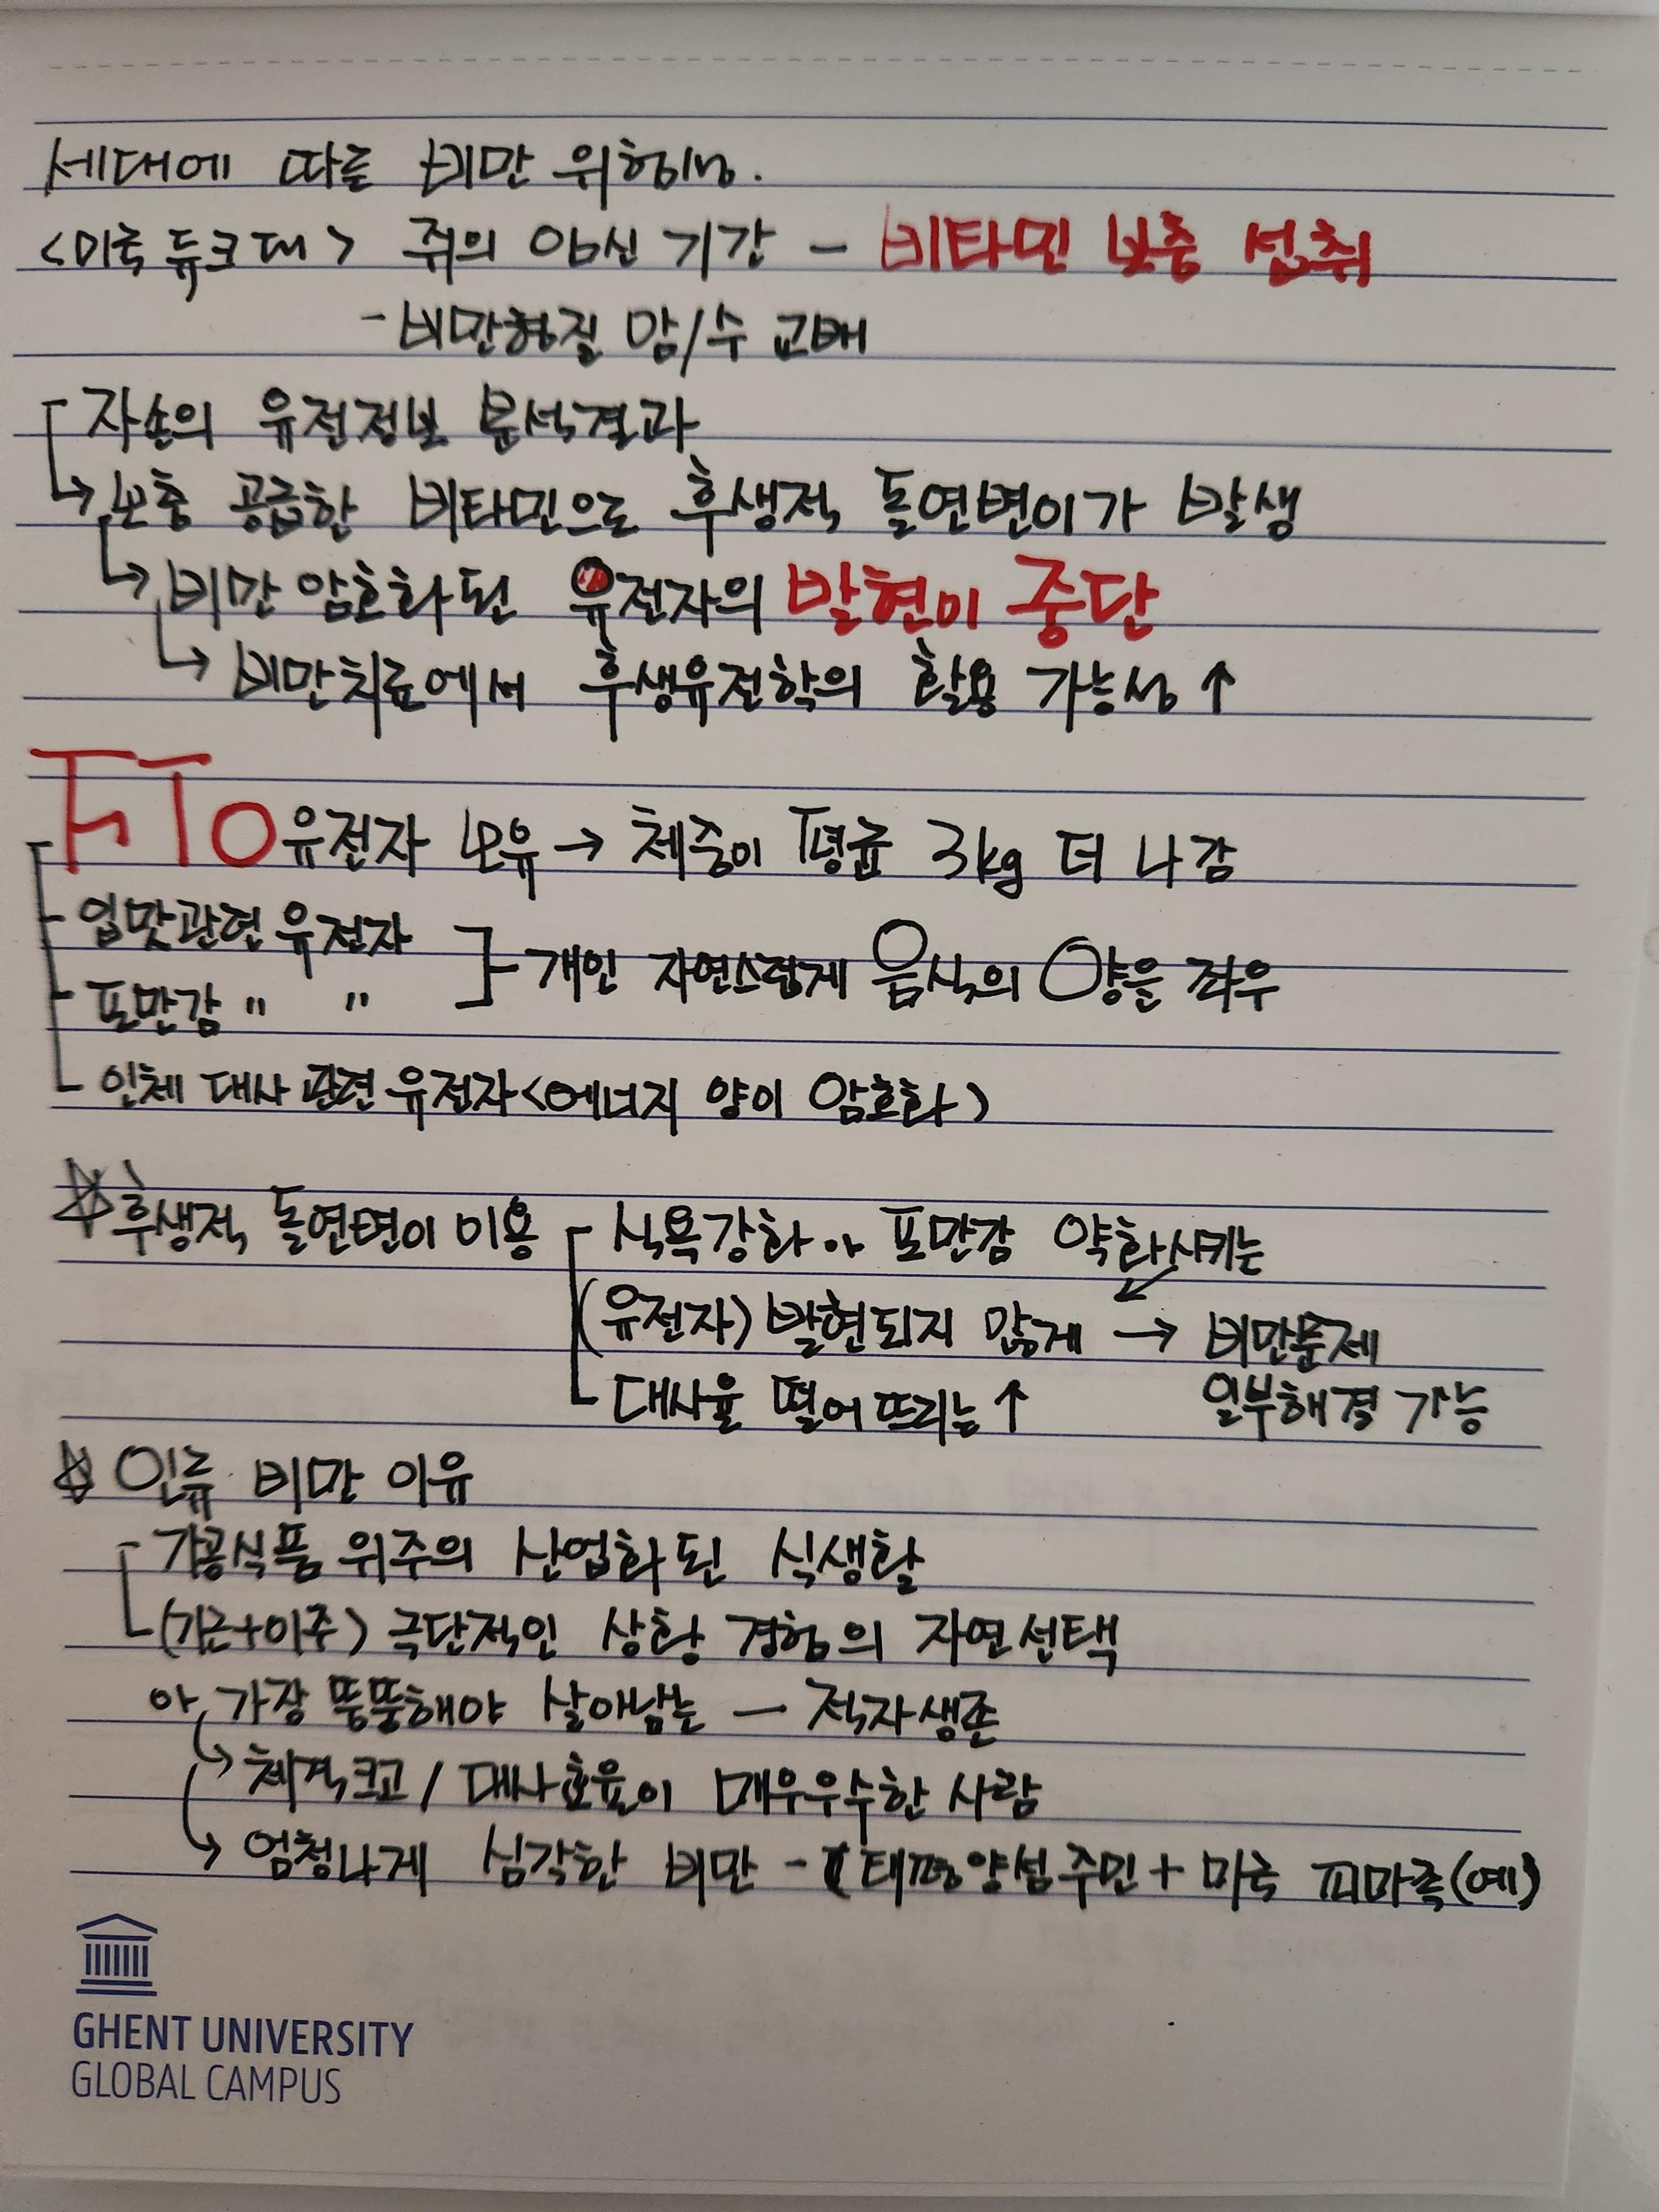 세대에 따른 비만 위험성.
<미국 듀크대> 쥐의 임신 기간 - 비타민 보충 섭취
- 비만형질 암/수 교배
자손의 유전정보 분석결과
→ 보충 공급한 비타민으로 후생적 돌연변이가 발생
→ 비만 암호화된 유전자의 발현이 중단
→ 비만치료에서 후생유전학의 활용 가능성 ↑
FTO 유전자 보유 → 체중이 평균 3kg 더 나감
- 입맛관련 유전자
- 포만감 〃 〃 ]- 개인 자연스럽게 음식의 양을 좌우
- 인체 대사 관련 유전자 <에너지 양이 암호화>
☆ 후생적 돌연변이 이용 - 식욕강화 or 포만감 약화시키는
(유전자) 발현되지 않게 → 비만문제
- 대사율 떨어뜨리는 ↑ 일부해결 가능
☆ 인류 비만 이유
- 가공식품 위주의 산업화된 식생활
- (기근+이주) 극단적인 상황 경험의 자연선택
가장 뚱뚱해야 살아남는 - 적자생존
→ 체격크고 / 대사효율이 매우우수한 사람
→ 엄청나게 심각한 비만 - (태평양섬주민 + 미국 피마족(예)
GHENT UNIVERSITY
GLOBAL CAMPUS